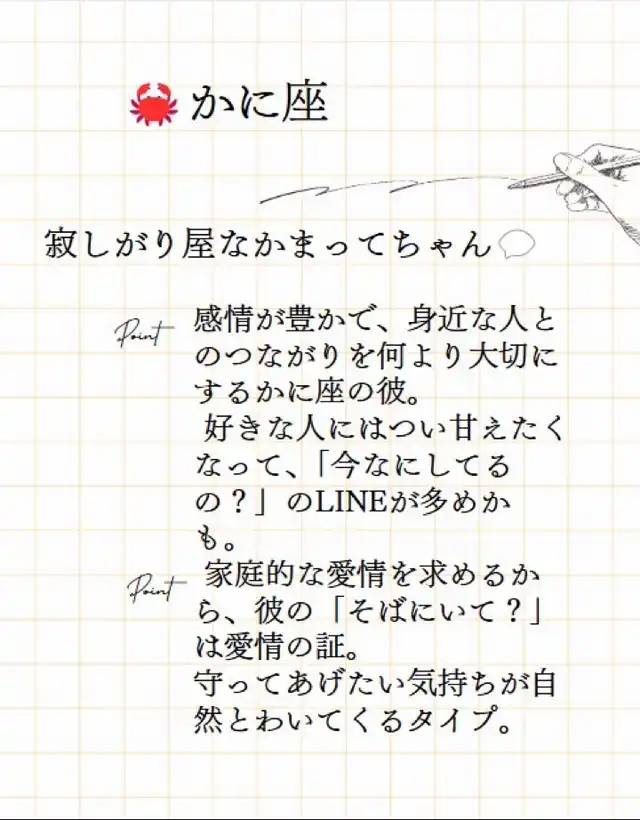 🦀 かに座
寂しがり屋なかまってちゃん💬
Point
感情が豊かで、身近な人と
のつながりを何より大切に
するかに座の彼。
好きな人にはつい甘えたく
なって、「今なにしてる
の？」のLINEが多めか
も。
Point
家庭的な愛情を求めるか
ら、彼の「そばにいて？」
は愛情の証。
守ってあげたい気持ちが自
然とわいてくるタイプ。